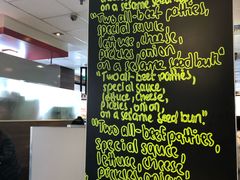 on a sesame seed bun"
"Two all-beef patties,
special sauce,
lettuce, cheese,
pickles, onions
on a sesame seed bun"
"Two all-beef patties,
special sauce,
lettuce, cheese,
pickles, onions,
on a sesame seed bun."
"Two all-beef patties,
special sauce,
lettuce, cheese,
pickles, onions